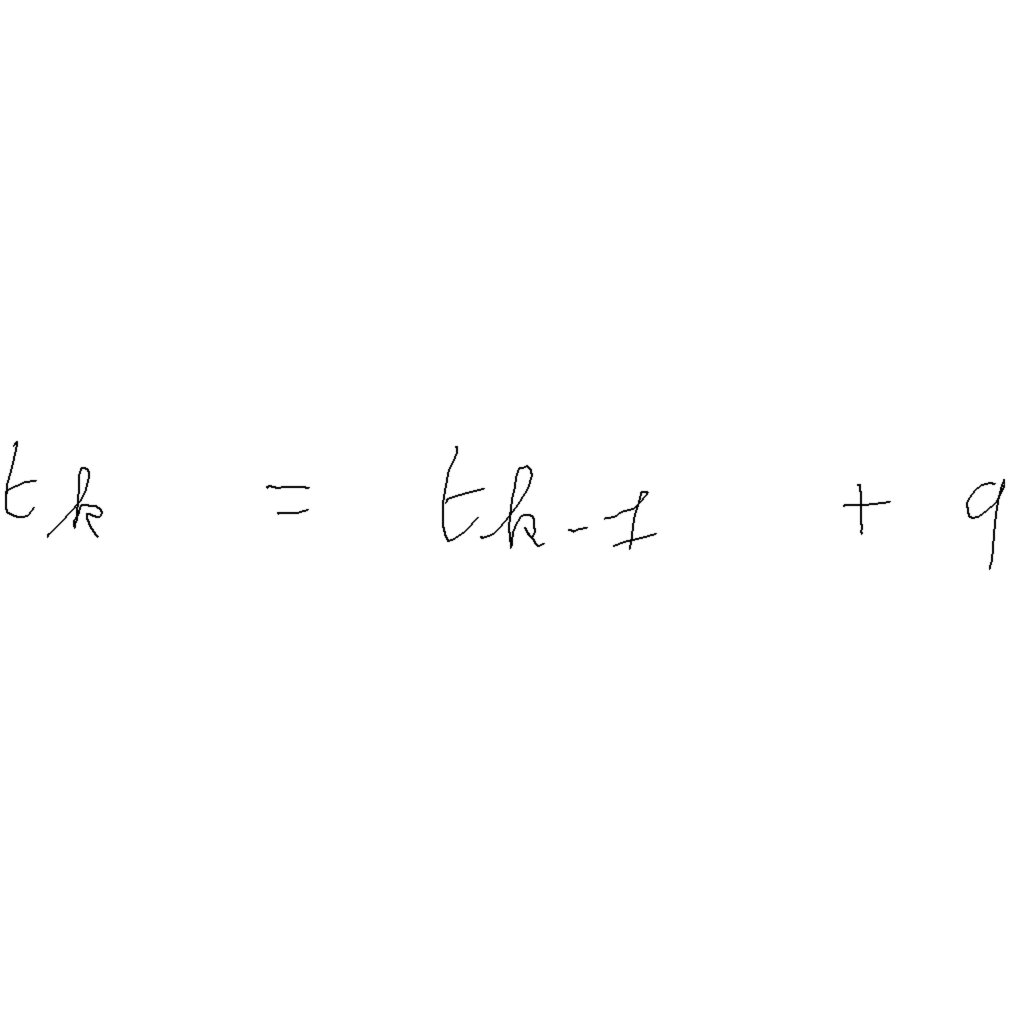 t_k = t_{k-1} + 9